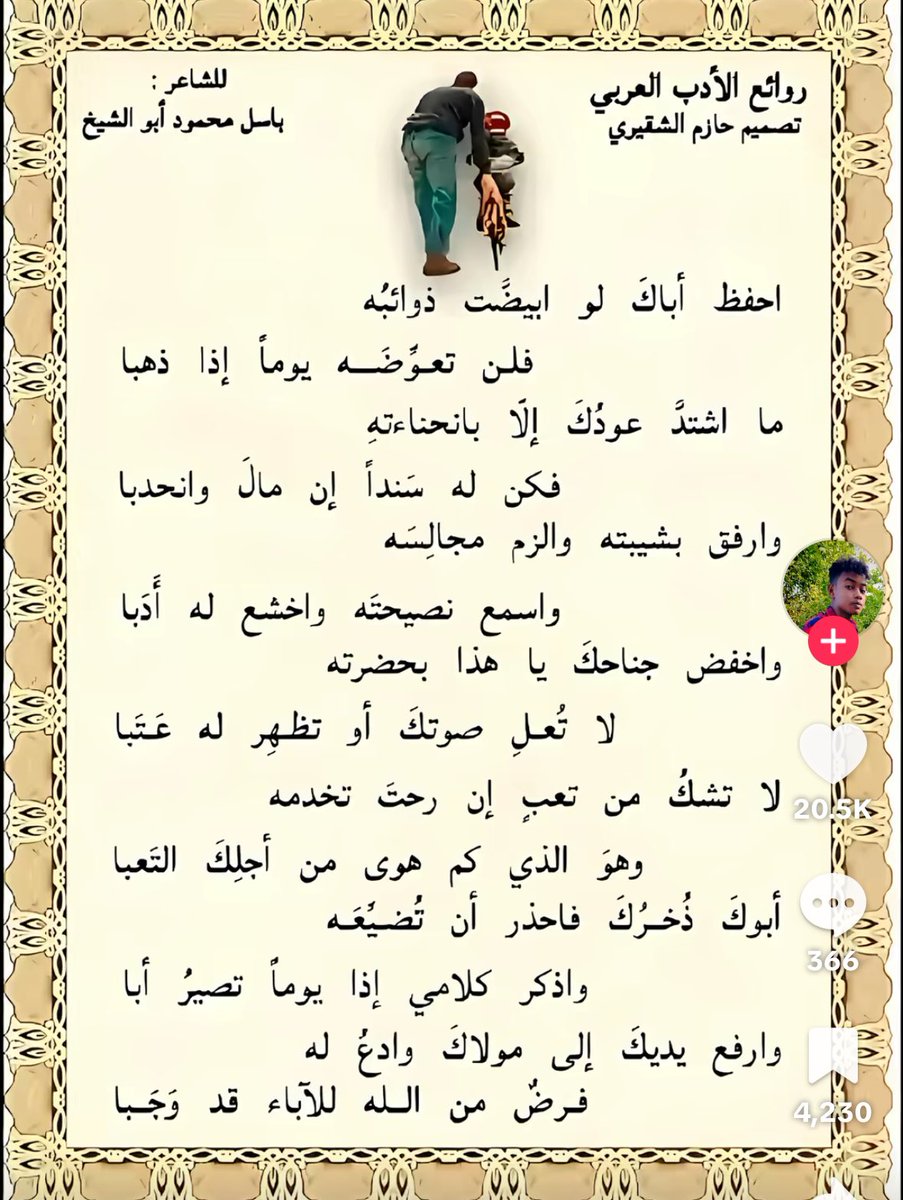 روائع الأدب العربي
تصميم حازم الشقيري
للشاعر :
باسل محمود أبو الشيخ
احفظ أباكَ لو ابيضَّت ذوائبُه
فلـن تعـوِّضَـــه يوماً إذا ذهبا
ما اشتدَّ عودُكَ إلّا بانحناءتهِ
فكن له سَنداً إن مالَ وانحدبا
وارفق بشيبته والزم مجالِسَه
واسمع نصيحتَه واخشع له أَدَبا
واخفض جناحكَ يا هذا بحضرته
لا تُعـلِ صوتكَ أو تظـهِر له عَـتَبا
لا تشكُ من تعبٍ إن رحتَ تخدمه
وهوَ الذي كم هوى من أجلِكَ التَعبا
أبوكَ ذُخـرُكَ فاحذر أن تُضـيِّعَـه
واذكر كلامي إذا يوماً تصيرُ أبا
وارفع يديكَ إلى مولاكَ وادعُ له
فـرضٌ من الـله للآباء قد وَجَـبا
20.5K
366
4,230